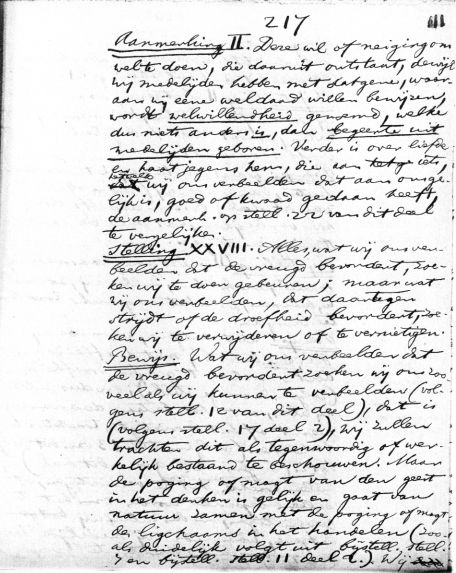 217
111
Aanmerking II. Deze wil of neiging om
wel te doen, die daaruit ontstaat, dewijl
wij medelijden hebben met datgene, waar-
aan wij eene weldaad willen bewijzen,
wordt welwillendheid genoemd, welke
dus niets anders is, dan begeerte uit
medelijden geboren. Verder is over liefde
en haat jegens hem, die aan iets,
hetwelk wij ons verbeelden dat aan ons ge-
lijk is, goed of kwaad gedaan heeft,
de aanmerk. op stell. 22 van dit deel
te vergelijken.
Stelling XXVIII. Alles, wat wij ons ver-
beelden dat de vreugd bevordert, zoe-
ken wij te doen gebeuren; maar wat
wij ons verbeelden, dat daartegen
strijdt of de droefheid bevordert, zoe-
ken wij te verwijderen of te vernietigen.
Bewijs. Wat wij ons verbeelden dat
de vreugd bevordert zoeken wij ons zoo
veel als wij kunnen te verbeelden (vol-
gens stell. 12 van dit deel), dat is
(volgens stell. 17 deel 2), wij zullen
trachten dit als tegenwoordig of wer-
kelijk bestaand te beschouwen. Maar
de poging of magt van den geest
in het denken is gelijk en gaat van
natuur zamen met de poging of magt
des ligchaams in het handelen (zoo-
als duidelijk volgt uit bijstell. stell.
7 en bijstell. stell. 11 deel 2.) Wij